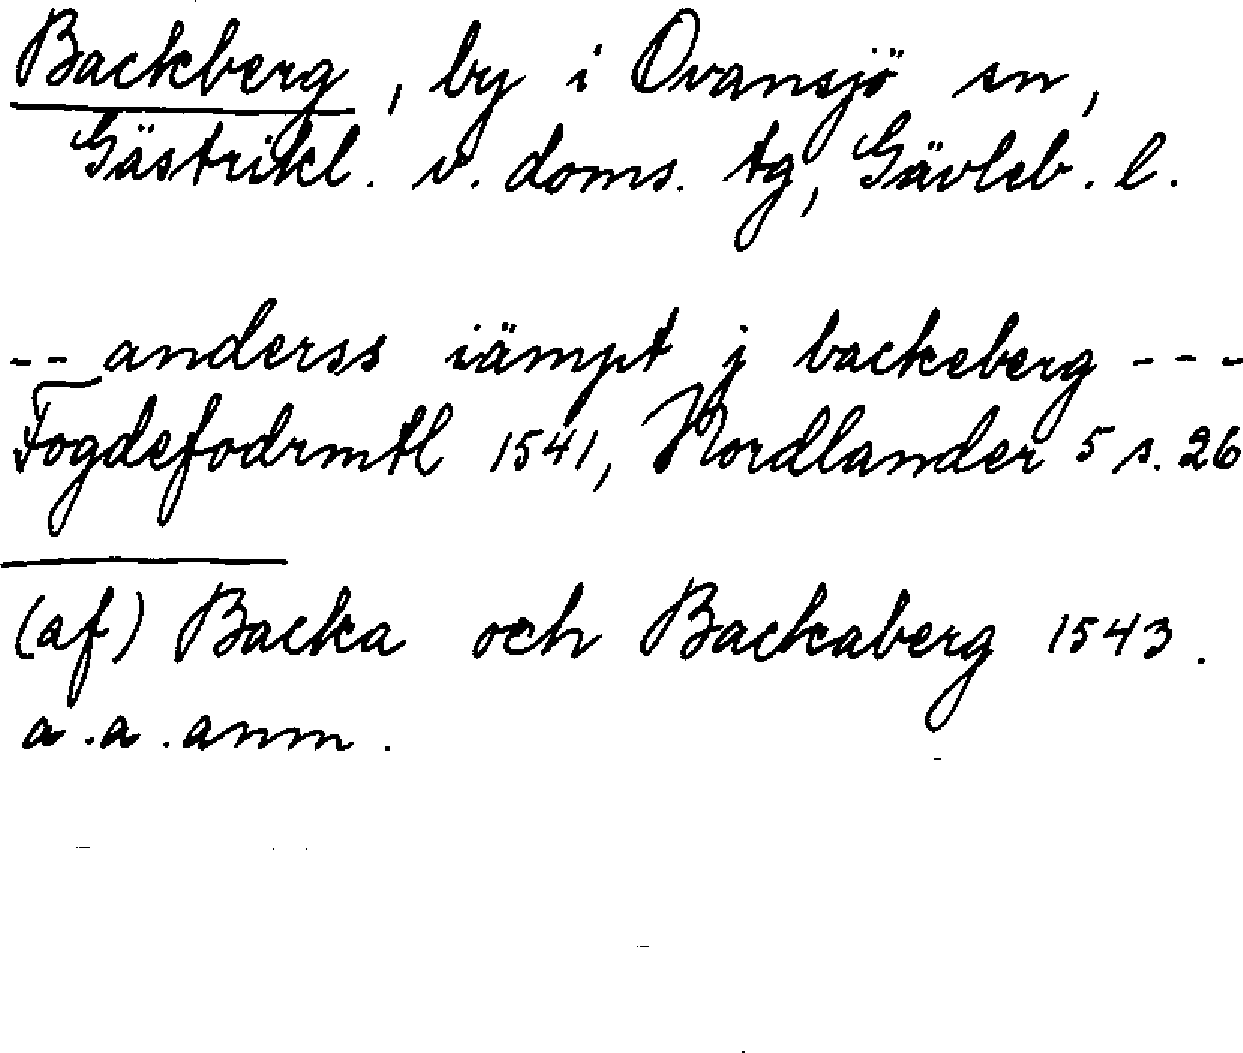 Backberg, by i Ovansjö sn,
Gästrikl. v. doms. tg, Gävleb. l.
-- anderss iämpt j backeberg ---
Fogdefodrmtl 1541, Nordlander 5 s. 26
(af) Backa och Backaberg 1543.
a.a. anm.